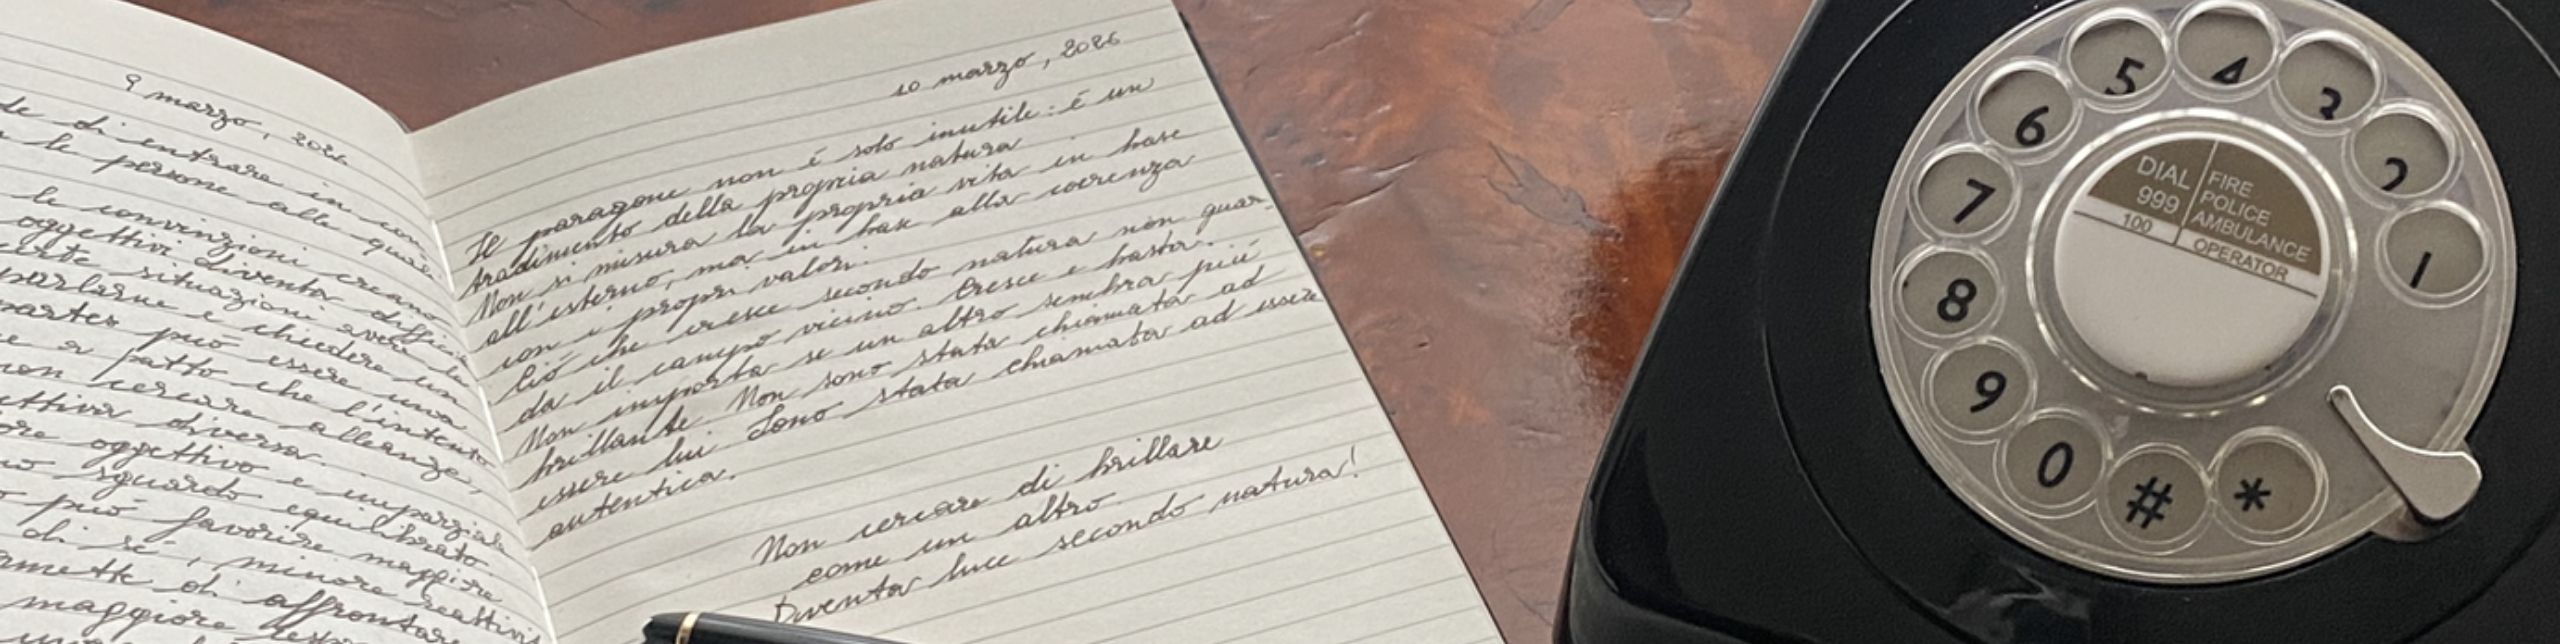 9 marzo, 2026
de di entrare in con
le persone alle quali
le convinzioni creano
oggettivi diventa difficile
certe situazioni avere la
parlarne e chiedere un
partes può essere una
e a patto che l'intento
non cercare alleanze,
ettiva diversa.
ore oggettivo e imparziale
sguardo equilibrato
può favorire maggiore
di sé, minore reattivi
rmette di affrontare
maggiore
10 marzo, 2026
Il paragone non é solo inutile: é un
tradimento della propria natura
Non si misura la propria vita in base
all'esterno, ma in base alla coerenza
con i propri valori.
Ció che cresce secondo natura non guar-
da il campo vicino. Cresce e basta.
Non importa se un altro sembra piú
brillante. Non sono stata chiamata ad
essere lui. Sono stata chiamata ad essere
autentica.
Non cercare di brillare
come un altro.
Diventa luce secondo natura!
5 4 3
6 2
7 1
8
9
0 # *
DIAL 999
FIRE
POLICE
AMBULANCE
100 OPERATOR